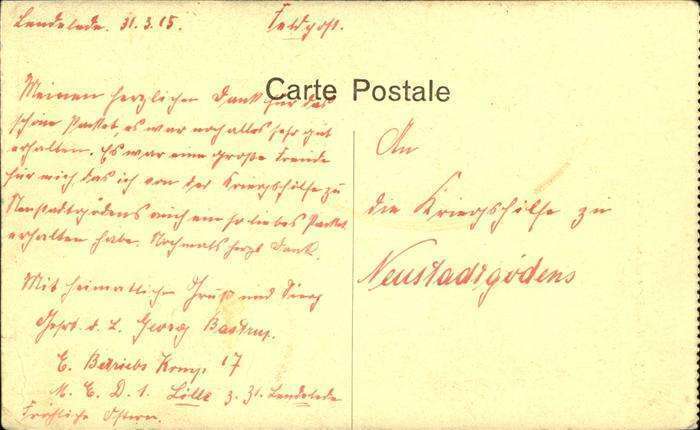 Lendelede. 31.3.15. Feldpost.
Carte Postale
Meinen herzlichen Dank für das
schöne Packet, es war noch alles sehr gut
erhalten. Es war eine große Freude
für mich das ich von der Kriegshilfe zu
Neustadtgödens auch ein so liebes Packet
erhalten habe. Nochmals herzl Dank.
Mit heimatlichen Gruß und
Gefrt. d. L. Georg
E. Betriebs Komp. 17
M. E. D. 1. Lille z. Zt. Lendelede
Fröhliche Ostern.
An
die Kriegshilfe zu
Neustadtgödens